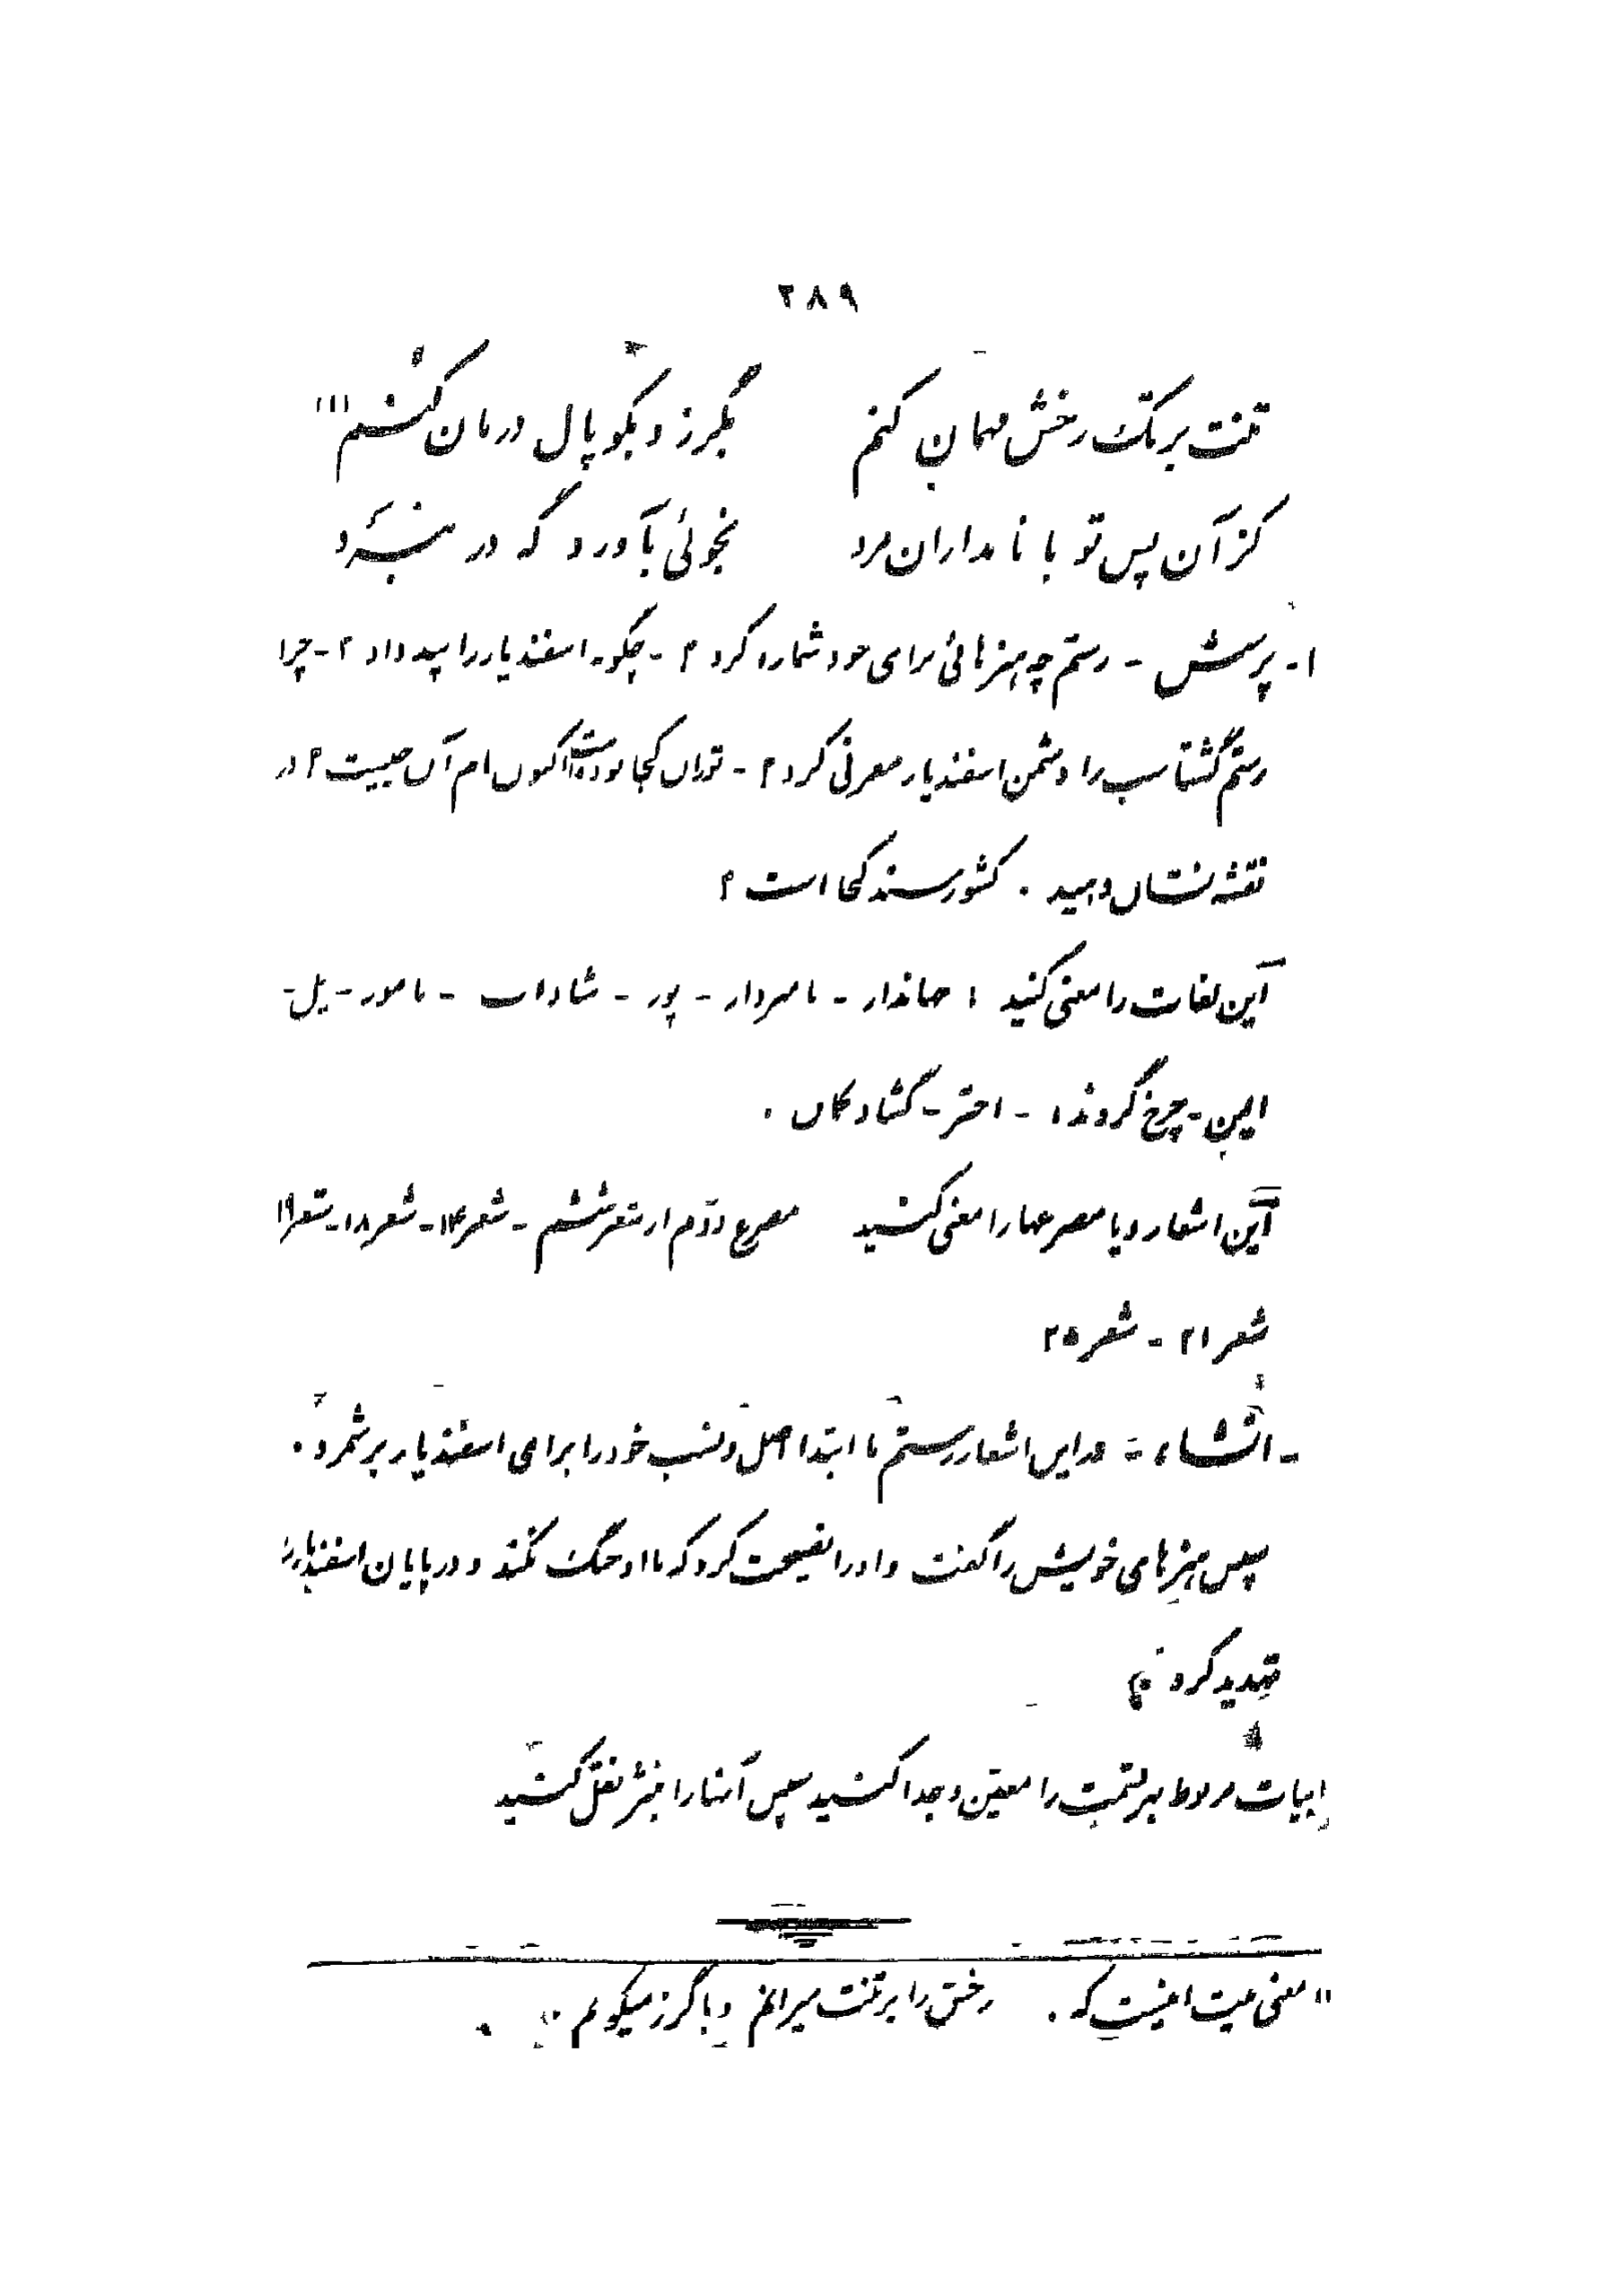 ۲۸۹
تنت بر تگ رخش مهمان کنم بگرز و بکوپال درمان کنم (۱)
کز آن پس تو با نامداران مرد نجوئی بآوردگه در نبرد
۱- پرسش - رستم چه هنرهائی برای خود شماره کرد ؟ - چگونه اسفندیار را پند داد ؟ - چرا
رستم گشتاسب را دشمن اسفندیار معرفی کرد ؟ - توران کجا بوده است اکنون نام آن چیست ؟ در
نقشه نشان دهید . کشور سند کجا است ؟
این لغات را معنی کنید : جهاندار - نامبردار - پور - شاداب - نامور - یل -
ایمن - چرخ گردنده - اختر - گشادگان .
این اشعار و یا مصرعها را معنی کنید مصرع دوم از شعر ششم - شعر ۱۴ - شعر ۱۸ - شعر ۱۹
شعر ۲۱ - شعر ۲۵
- انشاء - در این اشعار رستم ابتدا اصل و نسب خود را برای اسفندیار برشمرد .
سپس هنرهای خویش را گفت و او را نصیحت کرد که با او جنگ نکند و در پایان اسفندیار را
تهدید کرد
ابیات مربوط بهر قسمت را معین و جدا کنید سپس آنها را بنثر نقل کنید
(۱) معنی بیت اینست که . رخش را بر تنت میرانم و با گرز میکوبم .